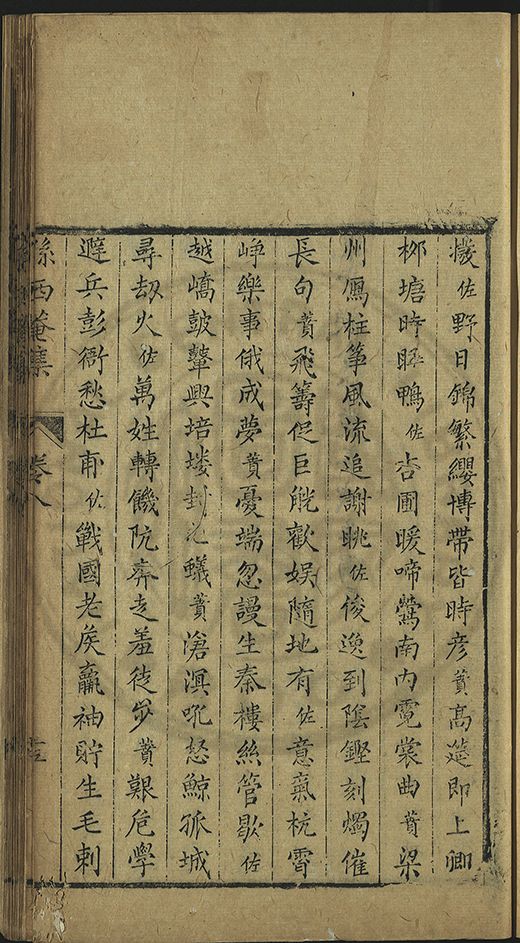 機佐野日錦繁纓博帶皆時彦蕡高筵即上卿
柳塘時眠鴨佐杏圃暖啼鶯南内霓裳曲蕡梁
州鳳柱筝風流追謝眺佐俊逸到陰鏗刻燭催
長句蕡飛籌促巨觥歡娱隨地有佐意氣杭霄
崢樂事俄成夢蕡憂端忽謾生秦樓絲管歇佐
越嶠鼓鼙興培塿封蟻蕡滄溟吼怒鯨孤城
尋劫火佐萬姓轉饑阬奔走羞徒步蕡艱危學
避兵彭衙愁杜甫佐戰國老侯羸袖貯生毛刺
孫西菴集 卷八